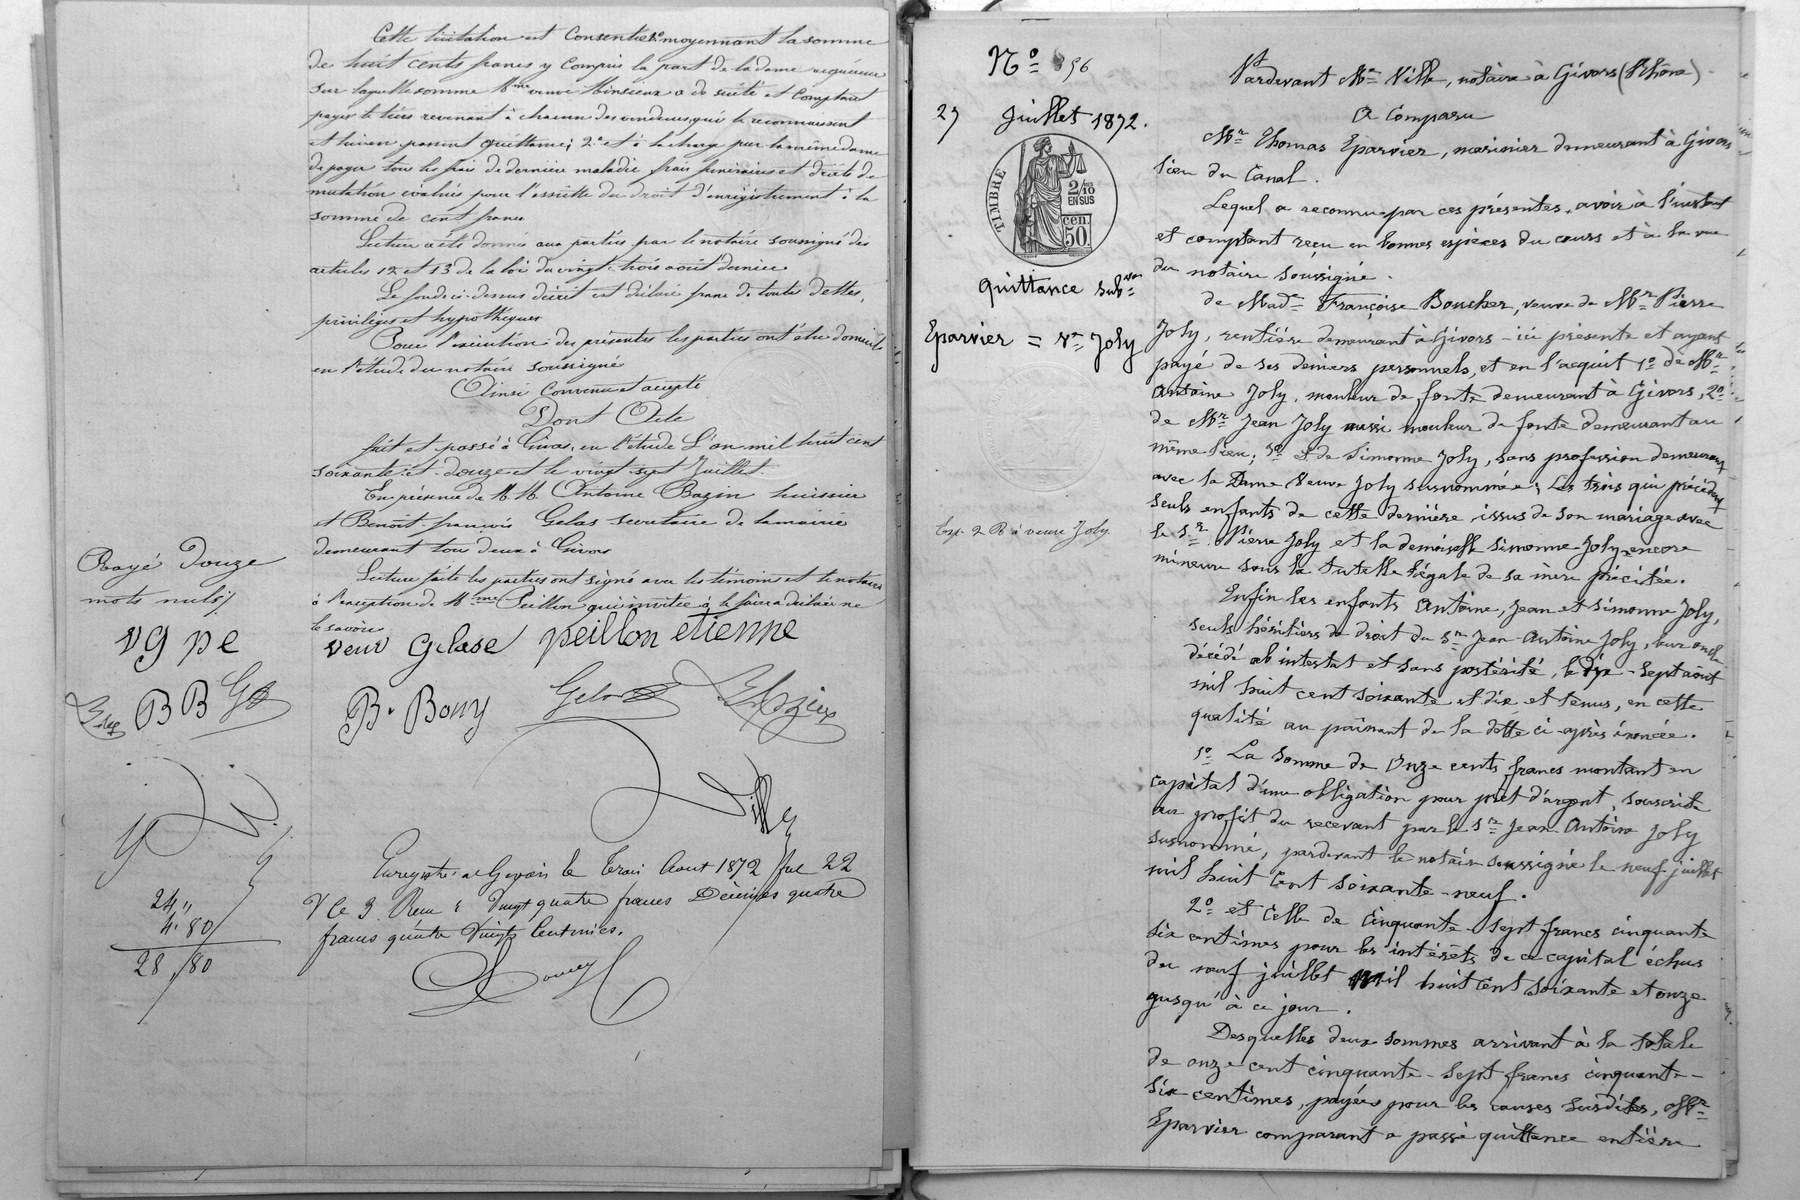 Cette licitation est Consentie moyennant la somme
de huit cents francs y Compris la part de la dame acquéreur
sur laquelle somme Mme veuve a de suite et Comptant
payé le tiers revenant à chacun des vendeurs qui le reconnaissent
et lui en passent quittance; 2º et à la charge par la même dame
de payer tous les frais de dernière maladie frais funéraires et droits de
mutation évalués pour l'assiette du droit d'enregistrement à la
somme de cent francs
Lecture a été donnée aux parties par le notaire soussigné des
articles 12 et 13 de la loi du vingt-trois août dernier
Le fonds ci-dessus décrit est déclaré franc de toutes dettes,
privilèges et hypothèques
Pour l'exécution des présentes les parties ont élu domicile
en l'étude du notaire soussigné
Ainsi Convenu et accepté
Dont Acte
fait et passé à Givors, en l'étude L'an mil huit cent
soixante-et-douze et le vingt-sept Juillet
En présence de M.M. Antoine Bazin huissier
et Benoît-françois Gelas secrétaire de la mairie
demeurant tous deux à Givors
Lecture faite les parties ont signé avec les témoins et le notaire
à l'exception de Mme Peillon qui invitée à le faire a déclaré ne
le savoir
Rayé Douze
mots nuls
vg pe
veuv Gelase peillon etienne
BB G
B. Bony Gelas
Ville
Enregistré à Givors le trois Aout 1872 fol 22
V Ce 3. Recu : Vingt quatre francs Décimes quatre
francs quatre Vingts Centimes.
24"
4.80
28,80
Nº 896
27 Juillet 1872.
TIMBRE
2/10
EN SUS
50 cen.
Quittance subon
Eparvier = Ve Joly
Exp. 2 R à veuve Joly
Pardevant Me Ville, notaire à Givors (Rhône)
A Comparu
Mr Thomas Eparvier, marinier demeurant à Givors
lieu du Canal.
Lequel a reconnu par ces présentes, avoir à l'instant
et comptant reçu en bonnes espèces du cours et à la vue
du notaire soussigné.
de Made Françoise Boucher, veuve de Mr Pierre
Joly, rentière demeurant à Givors - ici présente et ayant
payé de ses deniers personnels, et en l'acquit 1º de Mr
Antoine Joly, mouleur de fonte demeurant à Givors, 2º
de Mr Jean Joly aussi mouleur de fonte demeurant au
même lieu; 3º et de Simonne Joly, sans profession demeurant
avec la Dame Veuve Joly susnommée; Les trois qui précèdent
seuls enfants de cette dernière, issus de son mariage avec
le Sr Pierre Joly et la demoiselle Simonne Joly encore
mineure sous la tutelle légale de sa mère précitée.
Enfin les enfants Antoine, Jean et Simonne Joly,
seuls héritiers de droit du Sr Jean-Antoine Joly, leur oncle
décédé ab intestat et sans postérité, le dix-sept août
mil huit cent soixante et dix et tenus, en cette
qualité au paîment de la dette ci-après énoncée.
1º La somme de Onze cents francs montant en
capital d'une obligation pour prêt d'argent, souscrite
au profit du recevant par le Sr Jean-Antoine Joly
susnommé, pardevant le notaire soussigné le neuf juillet
mil huit Cent soixante-neuf.
2º et Celle de Cinquante-sept francs cinquante
six centimes pour les intérêts de ce capital échus
du neuf juillet mil huit Cent soixante et onze
jusqu'à ce jour.
Desquelles deux sommes arrivant à la totale
de onze cent cinquante-sept francs cinquante-
six centimes, payées pour les causes susdites, Mr
Eparvier comparant a passé quittance entière